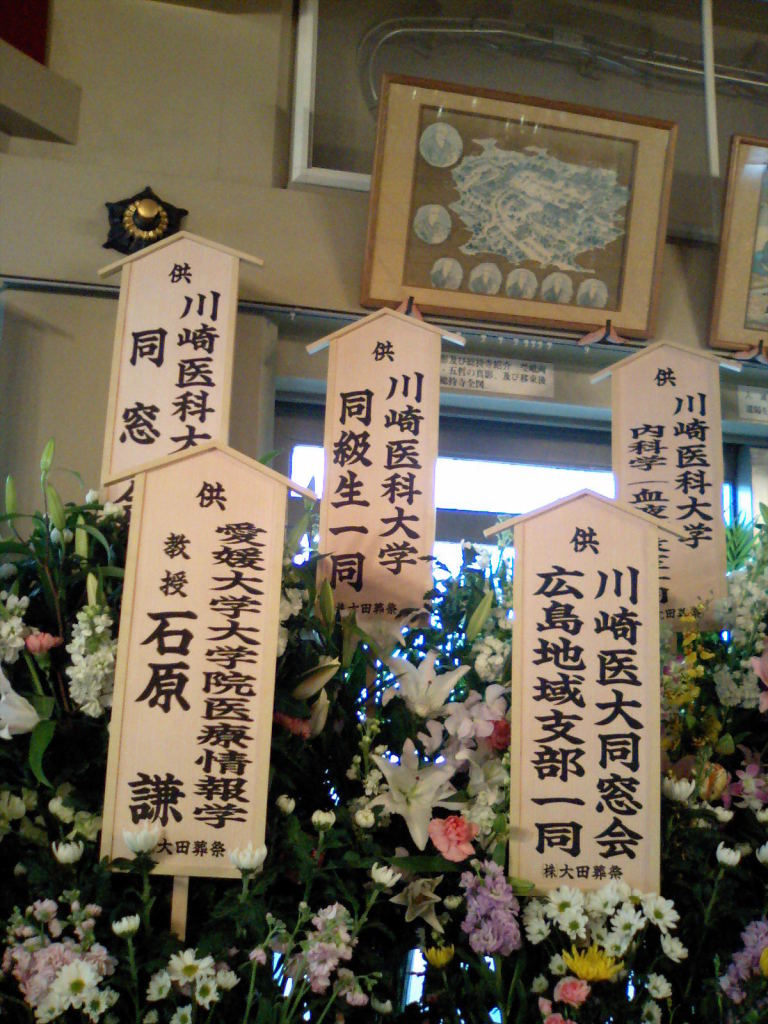 供
川崎医科大
同窓
供
川崎医科大学
同級生一同
株大田葬祭
供
川崎医科大学
内科学
供
愛媛大学大学院医療情報学
教授 石原 謙
大田葬祭
供
川崎医大同窓会
広島地域支部一同
株大田葬祭